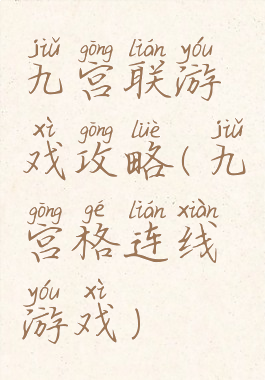 jiǔ gōng lián yóu
九宫联游
xì gōng lüè jiǔ
戏攻略(九
gōng gé lián xiàn
宫格连线
yóu xì
游戏)